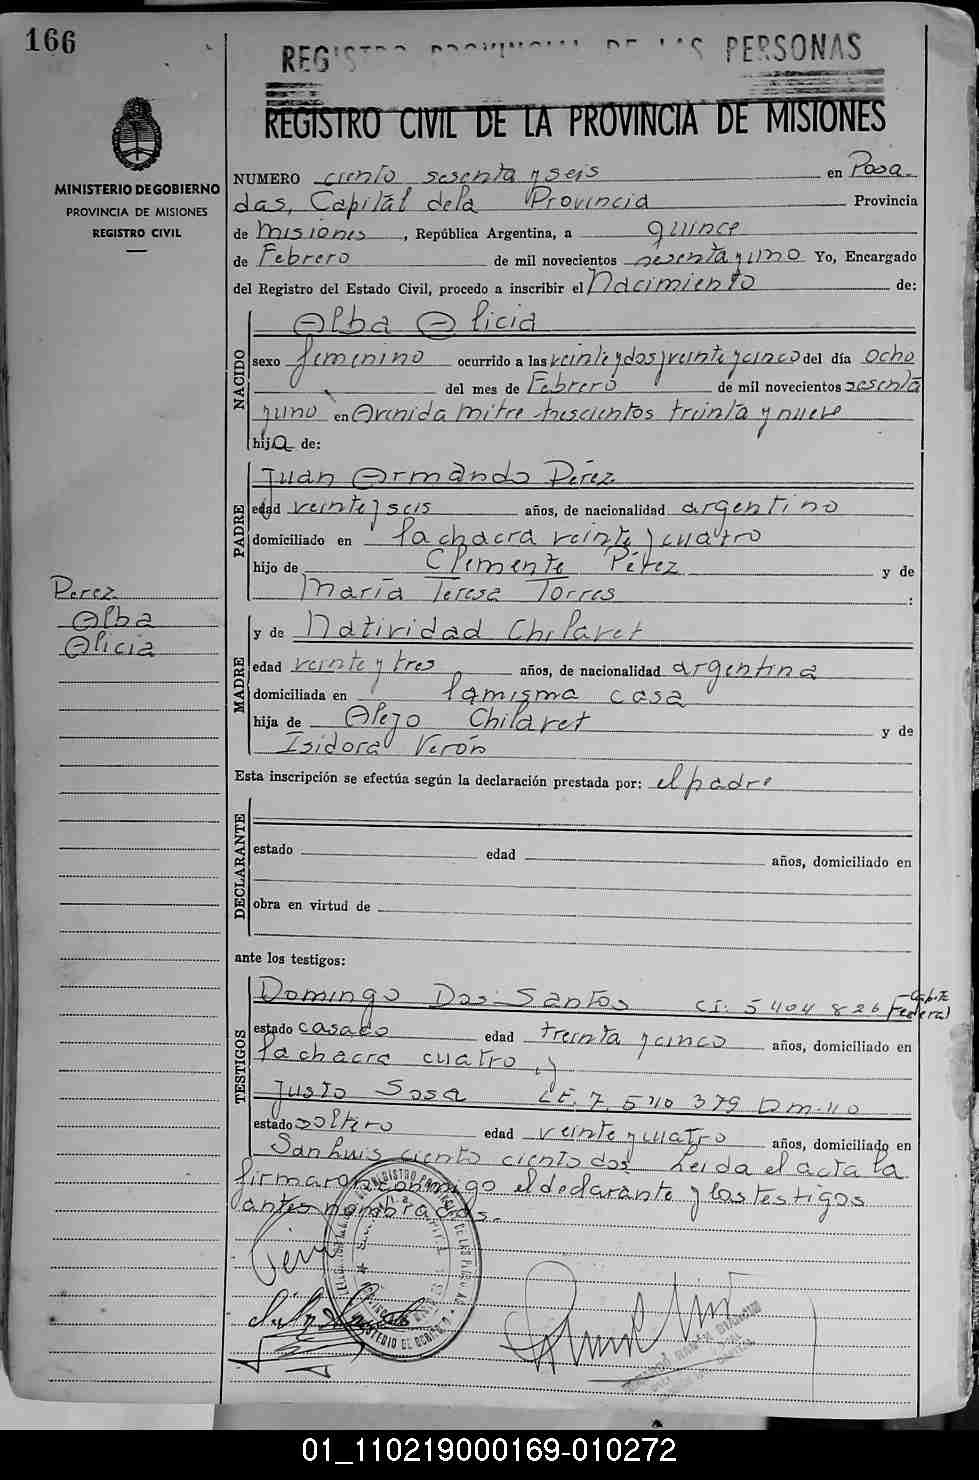 166
REGISTRO PROVINCIAL DE LAS PERSONAS
REGISTRO CIVIL DE LA PROVINCIA DE MISIONES
MINISTERIO DE GOBIERNO
PROVINCIA DE MISIONES
REGISTRO CIVIL
NUMERO ciento sesenta y seis en Posa
das, Capital de la Provincia Provincia
de Misiones, República Argentina, a quince
de Febrero de mil novecientos sesenta y uno Yo, Encargado
del Registro del Estado Civil, procedo a inscribir el Nacimiento de:
NACIDO
Alba Alicia
sexo femenino ocurrido a las veinte y dos y veinte y cinco del día ocho
del mes de Febrero de mil novecientos sesenta
y uno en Avenida Mitre trescientos treinta y nueve
hija de:
PADRE
Juan Armando Pérez
edad veinte y seis años, de nacionalidad argentino
domiciliado en la chacra veinte y cuatro
hijo de Clemente Pérez y de
María Teresa Torres :
Perez
Alba
Alicia
MADRE
y de Natividad Chilavet
edad veinte y tres años, de nacionalidad argentina
domiciliada en la misma casa
hija de Alejo Chilavet y de
Isidora Verón
Esta inscripción se efectúa según la declaración prestada por: el padre
DECLARANTE
estado edad años, domiciliado en
obra en virtud de
ante los testigos:
TESTIGOS
Domingo Dos Santos CI. 5404826 Capital Federal
estado casado edad treinta y cinco años, domiciliado en
la chacra cuatro, y
Justo Sosa LE. 7.540379 DM-40
estado soltero edad veinte y cuatro años, domiciliado en
San Luis ciento ciento dos. Leida el acta la
firmaron conmigo el declarante y los testigos
antes nombrados.-
01_110219000169-010272